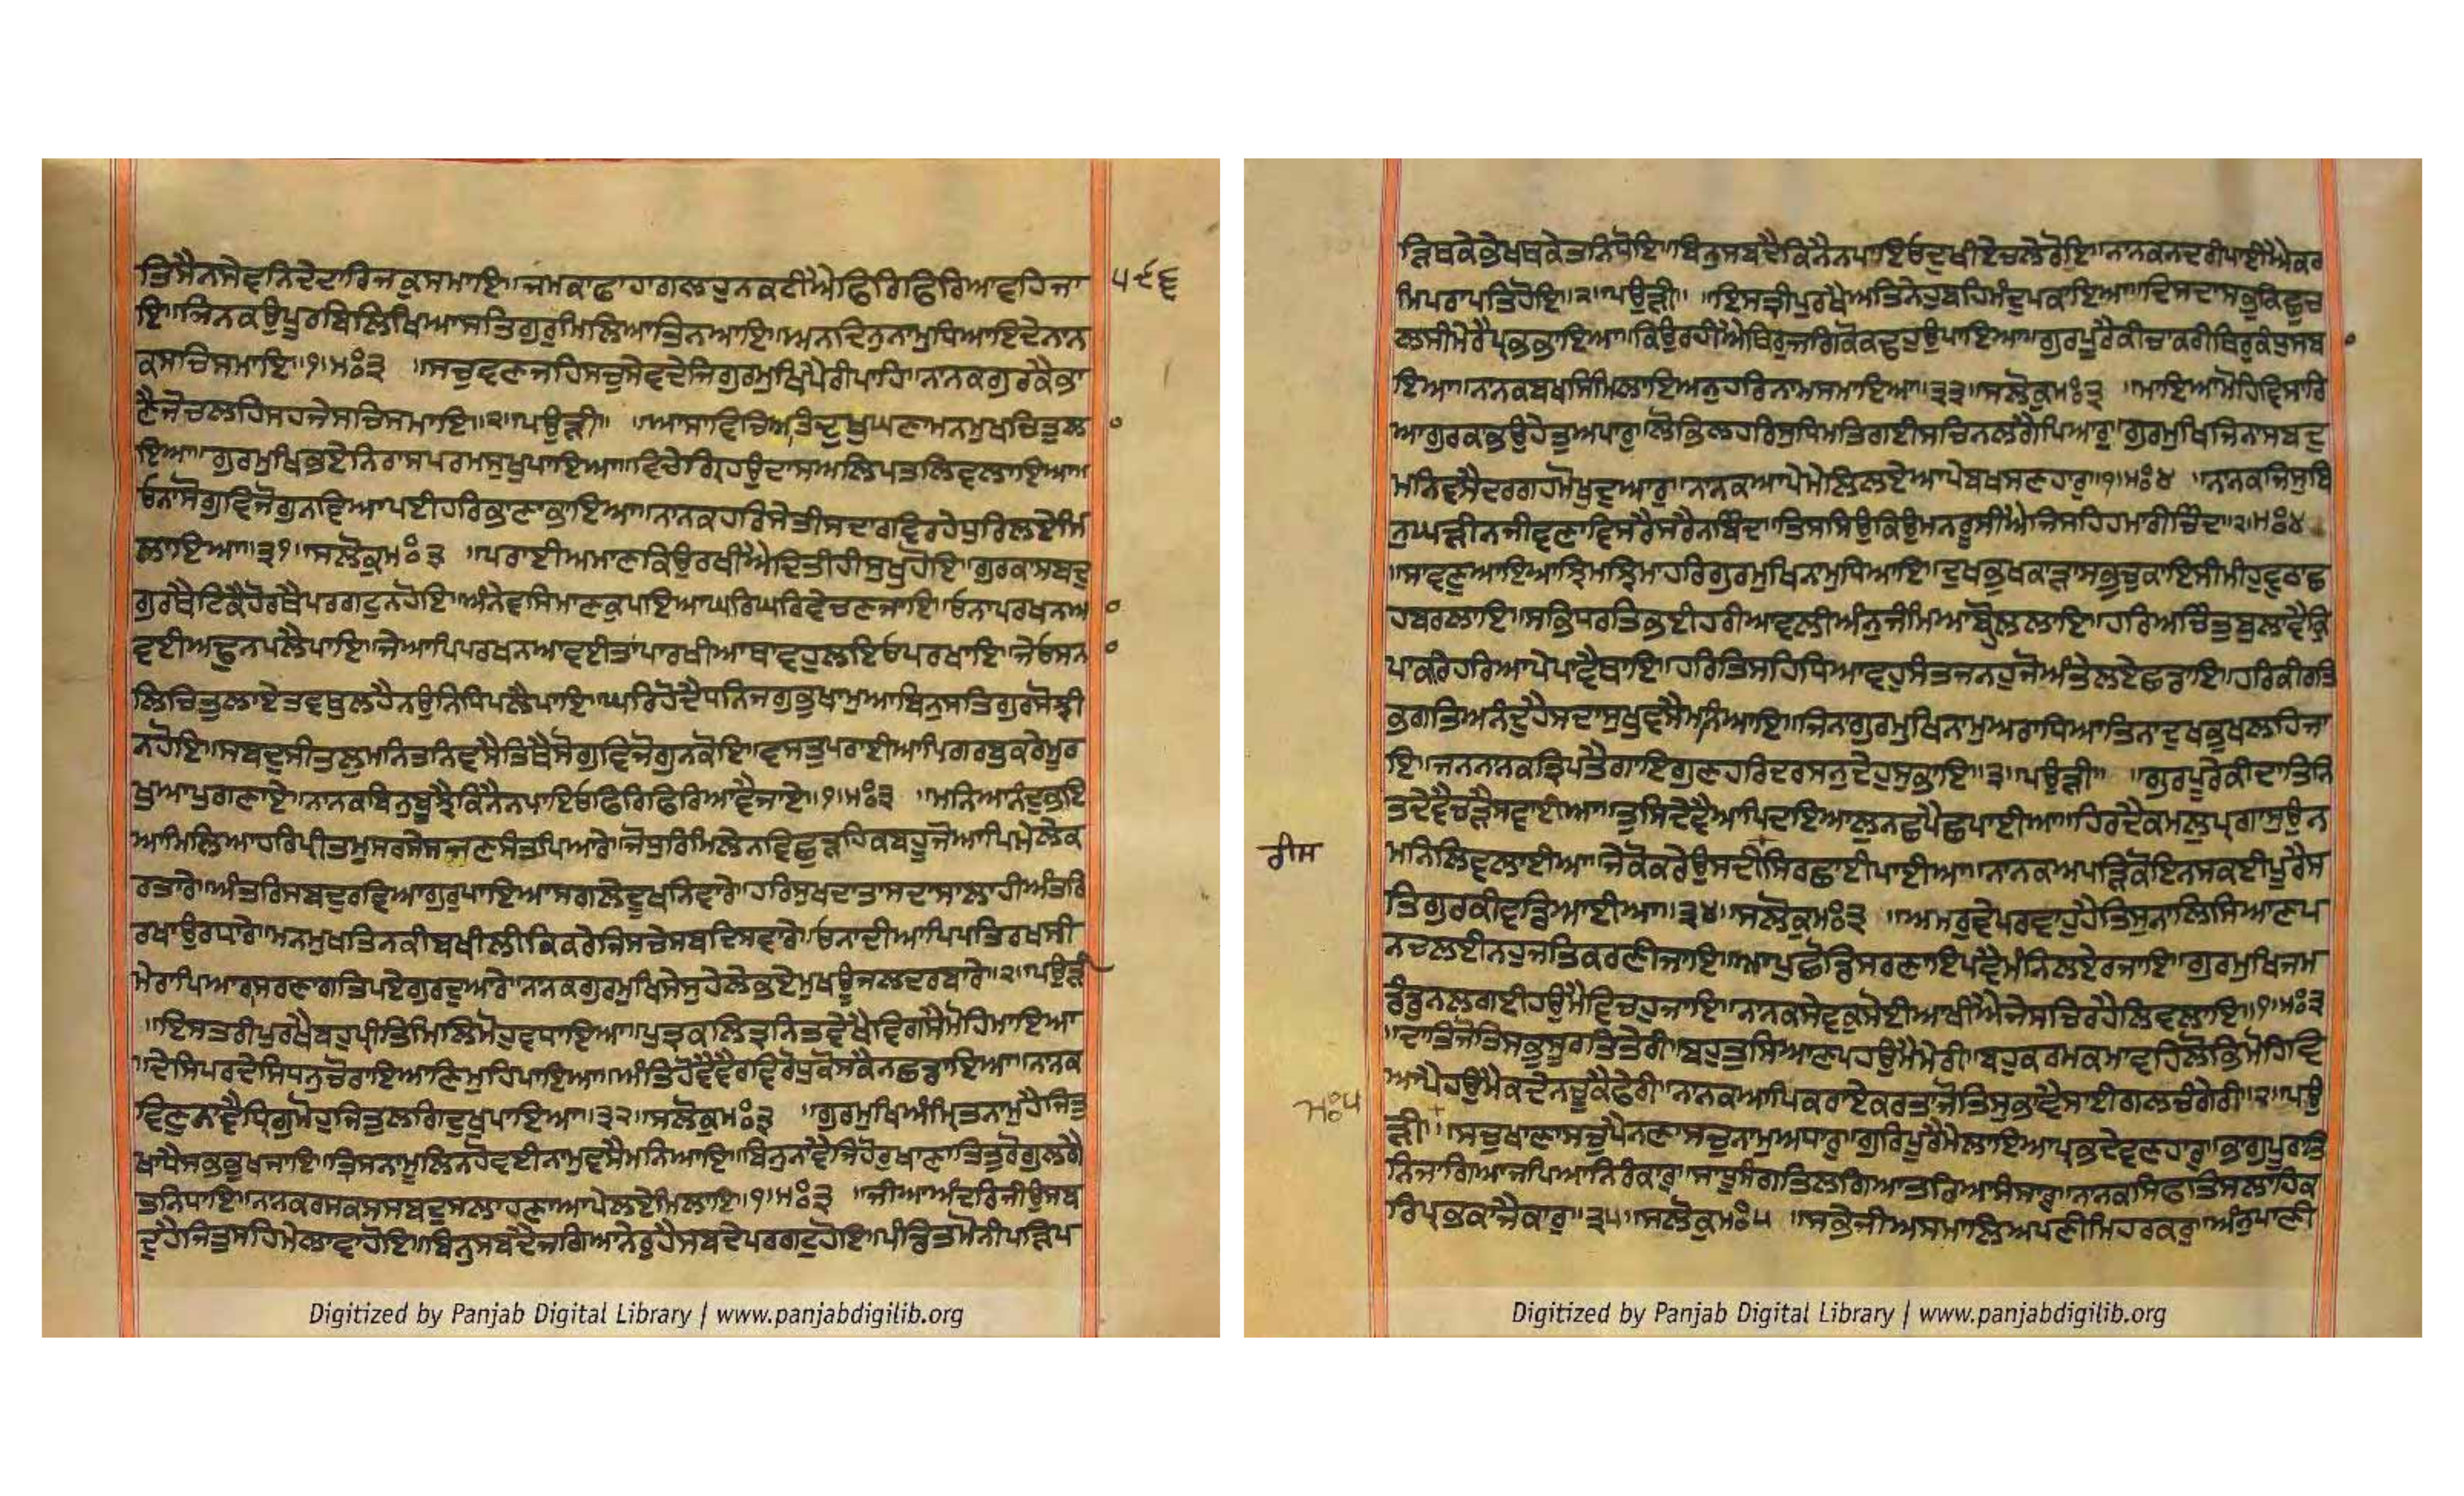 ਤਿਸੈਨਸੇਵਨਿਦੇਦਾਰਿਜਕੁਸਮਾਇ॥ਜਮਕਾਫਾਹਾਗਲਹੁਨਕਟੀਐਫਿਰਿਫਿਰਿਆਵਹਿਜਾ ੫੯੬
ਇ॥ਜਿਨਕਉਪੂਰਬਿਲਿਖਿਆਸਤਿਗੁਰੁਮਿਲਿਆਤਿਨਆਇ॥ਅਨਦਿਨੁਨਾਮੁਧਿਆਇਦੇਨਾਨ
ਕਸਚਿਸਮਾਇ॥੧॥ਮਃ੩ ॥ਸਚੁਵਣਜਹਿਸਚੁਸੇਵਦੇਜਿਗੁਰਮੁਖਿਪੈਰੀਪਾਹਿ॥ਨਾਨਕਗੁਰਕੈਭਾ
ਣੈਜੇਚਲਹਿਸਹਜੇਸਚਿਸਮਾਇ॥੨॥ਪਉੜੀ॥ ॥ਆਸਾਵਿਚਿਅਤਿਦੁਖੁਘਣਾਮਨਮੁਖਚਿਤੁਲ
ਇਆ॥ਗੁਰਮੁਖਿਭਏਨਿਰਾਸਪਰਮਸੁਖੁਪਾਇਆ॥ਵਿਚੇਗਿਰਹਉਦਾਸਅਲਿਪਤਲਿਵਲਾਇਆ॥
ਓਨਾਸੋਗੁਵਿਜੋਗੁਨਵਿਆਪਈਹਰਿਭਾਣਾਭਾਇਆ॥ਨਾਨਕਹਰਿਸੇਤੀਸਦਾਰਵਿਰਹੇਧੁਰਿਲਏਮਿ
ਲਾਇਆ॥੩੧॥ਸਲੋਕੁਮਃ੩ ॥ਪਰਾਈਅਮਾਣਕਿਉਰਖੀਐਦਿਤੀਹੀਸੁਖੁਹੋਇ॥ਗੁਰਕਾਸਬਦੁ
ਗੁਰਥੈਟਿਕੈਹੋਰਥੈਪਰਗਟੁਨਹੋਇ॥ਅੰਨੇਵਸਿਮਾਣਕੁਪਾਇਆਘਰਿਘਰਿਵੇਚਣਜਾਇ॥ਓਨਾਪਰਖਨਆ
ਵਈਅਢੁਨਪਲੈਪਾਇ॥ਜੇਆਪਿਪਰਖਨਆਵਈਤਾਂਪਾਰਖੀਆਥਾਵਹੁਲਇਓਪਰਖਾਇ॥ਜੇਓਸਨ
ਲਿਚਿਤੁਲਾਏਤਵਥੁਲਹੈਨਉਨਿਧਿਪਲੈਪਾਇ॥ਘਰਿਹੋਦੈਧਨਿਜਗੁਭੁਖਾਮੁਆਬਿਨੁਸਤਿਗੁਰਸੋਝੀ
ਨਹੋਇ॥ਸਬਦੁਸੀਤਲੁਮਨਿਤਨਿਵਸੈਤਿਥੈਸੋਗੁਵਿਜੋਗੁਨਕੋਇ॥ਵਸਤੁਪਰਾਈਆਪਿਗਰਬੁਕਰੇਮੂਰ
ਖੁਆਪੁਗਣਾਏ॥ਨਾਨਕਬਿਨੁਬੂਝੈਕਿਨੈਨਪਾਇਓਫਿਰਿਫਿਰਿਆਵੈਜਾਏ॥੧॥ਮਃ੩ ॥ਮਨਿਆਨੰਦੁਭਇ
ਆਮਿਲਿਆਹਰਿਪ੍ਰੀਤਮੁਸਰਸੇਸਜਣਸੰਤਪਿਆਰੇ॥ਜੋਧੁਰਿਮਿਲੇਨਵਿਛੁੜਹਿਕਬਹੂਜੋਆਪਿਮੇਲੇਕ
ਰਤਾਰੇ॥ਅੰਤਰਿਸਬਦੁਰਵਿਆਗੁਰੁਪਾਇਆਸਗਲੇਦੂਖਨਿਵਾਰੇ॥ਹਰਿਸੁਖਦਾਤਾਸਦਾਸਾਲਾਹੀਅੰਤਰਿ
ਰਖਾਉਰਧਾਰੇ॥ਮਨਮੁਖਤਿਨਕੀਬਖੀਲੀਕਿਕਰੇਜਿਸਚੇਸਬਦਿਸਵਾਰੇ॥ਓਨਾਦੀਆਪਿਪਤਿਰਖਸੀ
ਮੇਰਾਪਿਆਰਾਸਰਣਾਗਤਿਪਏਗੁਰਦੁਆਰੇ॥ਨਾਨਕਗੁਰਮੁਖਿਸੇਸੁਹੇਲੇਭਏਮੁਖਊਜਲਦਰਬਾਰੇ॥੨॥ਪਉੜੀ
॥ਇਸਤਰੀਪੁਰਖੈਬਹੁਪ੍ਰੀਤਿਮਿਲਿਮੋਹੁਵਧਾਇਆ॥ਪੁਤ੍ਰਕਲਤ੍ਰਨਿਤਵੇਖੈਵਿਗਸੈਮੋਹਿਮਾਇਆ
॥ਦੇਸਿਪਰਦੇਸਿਧਨੁਚੋਰਾਇਆਣਿਮੁਹਿਪਾਇਆ॥ਅੰਤਿਹੋਵੈਵੈਰਵਿਰੋਧੁਕੋਸਕੈਨਛਡਾਇਆ॥ਨਾਨਕ
ਵਿਣੁਨਾਵੈਧ੍ਰਿਗੁਮੋਹੁਜਿਤੁਲਗਿਦੁਖੁਪਾਇਆ॥੩੨॥ਸਲੋਕੁਮਃ੩ ॥ਗੁਰਮੁਖਿਅੰਮ੍ਰਿਤਨਾਮੁਹੈਜਿਤੁ
ਖਾਧੈਸਭਭੁਖਜਾਇ॥ਤ੍ਰਿਸਨਾਮੂਲਿਨਹੋਵਈਨਾਮੁਵਸੈਮਨਿਆਇ॥ਬਿਨੁਨਾਵੈਜਿਹੋਰੁਖਾਣਾਤਿਤੁਰੋਗੁਲਗੈ
ਤਨਿਧਾਇ॥ਨਾਨਕਰਸਕਸਸਬਦੁਸਲਾਹਣਾਆਪੇਲਏਮਿਲਾਇ॥੧॥ਮਃ੩ ॥ਜੀਆਅੰਦਰਿਜੀਉਸਬ
ਦੁਹੈਜਿਤੁਸਹਮੇਲਾਵਾਹੋਇ॥ਬਿਨੁਸਬਦੈਜਗਿਆਨੇਰੁਹੈਸਬਦੇਪਰਗਟੁਹੋਇ॥ਪੰਡਿਤਮੋਨੀਪੜਿਪ
Digitized by Panjab Digital Library | www.panjabdigilib.org
ੜਿਥਕੇਭੇਖਥਕੇਤਨਿਧੋਇ॥ਬਿਨੁਸਬਦੈਕਿਨੈਨਪਾਇਓਦੁਖੀਏਚਲੇਰੋਇ॥ਨਾਨਕਨਦਰੀਪਾਈਐਕਰ
ਮਿਪਰਾਪਤਿਹੋਇ॥੨॥ਪਉੜੀ॥ ॥ਇਸਤ੍ਰੀਪੁਰਖੈਅਤਿਨੇਹੁਬਹਿਮੰਦੁਪਕਾਇਆ॥ਦਿਸਦਾਸਭੁਕਿਛੁਚ
ਲਸੀਮੇਰੈਪ੍ਰਭਭਾਇਆ॥ਕਿਉਰਹੀਐਥਿਰੁਜਗਿਕੋਕਢਹੁਉਪਾਇਆ॥ਗੁਰਪੂਰੇਕੀਚਾਕਰੀਥਿਰੁਕੰਧੁਸਬ
ਇਆ॥ਨਾਨਕਬਖਸਿਮਿਲਾਇਅਨੁਹਰਿਨਾਮਸਮਾਇਆ॥੩੩॥ਸਲੋਕੁਮਃ੩ ॥ਮਾਇਆਮੋਹਿਵਿਸਾਰਿ
ਆਗੁਰਕਾਭਉਹੇਤੁਅਪਾਰੁ॥ਲੋਭਿਲਹਰਿਸੁਧਿਮਤਿਗਈਸਚਿਨਲਗੈਪਿਆਰੁ॥ਗੁਰਮੁਖਿਜਿਨਾਸਬਦੁ
ਮਨਿਵਸੈਦਰਗਹਮੋਖਦੁਆਰੁ॥ਨਾਨਕਆਪੇਮੇਲਿਲਏਆਪੇਬਖਸਣਹਾਰੁ॥੧॥ਮਃ੪ ॥ਨਾਨਕਜਿਸੁਬਿ
ਨੁਘੜੀਨਜੀਵਣਾਵਿਸਰੈਸਰੈਨਬਿੰਦਾ॥ਤਿਸਸਿਉਕਿਉਮਨਰੂਸੀਐਜਿਸਹਿਹਮਾਰੀਚਿੰਦਾ॥੨॥ਮਃ੪
॥ਸਾਵਣੁਆਇਆਝਿਮਝਿਮਾਹਰਿਗੁਰਮੁਖਿਨਾਮੁਧਿਆਇ॥ਦੁਖਭੁਖਕਾੜਾਸਭੁਚੁਕਾਇਸੀਮੀਹੁਵੁਠਾਛ
ਹਬਰਲਾਇ॥ਸਭਿਧਰਤਿਭਈਹਰੀਆਵਲੀਅੰਨੁਜੰਮਿਆਬੋਹਲਲਾਇ॥ਹਰਿਅਚਿੰਤੁਬੁਲਾਵੈਕ੍ਰਿ
ਪਾਕਰਿਹਰਿਆਪੇਪਾਵੈਥਾਇ॥ਹਰਿਤਿਸਹਿਧਿਆਵਹੁਸੰਤਜਨਹੁਜੋਅੰਤੇਲਏਛਡਾਇ॥ਹਰਿਕੀਰਤਿ
ਭਗਤਿਅਨੰਦੁਹੈਸਦਾਸੁਖੁਵਸੈਮਨਿਆਇ॥ਜਿਨਾਗੁਰਮੁਖਿਨਾਮੁਅਰਾਧਿਆਤਿਨਾਦੁਖਭੁਖਲਹਿਜਾ
ਇ॥ਜਨਨਾਨਕਤ੍ਰਿਪਤੈਗਾਇਗੁਣਹਰਿਦਰਸਨੁਦੇਹੁਸੁਭਾਇ॥੩॥ਪਉੜੀ॥ ॥ਗੁਰਪੂਰੇਕੀਦਾਤਿਨਿ
ਤਦੇਵੈਚੜੈਸਵਾਈਆ॥ਤੁਸਿਦੇਵੈਆਪਿਦਇਆਲੁਨਛਪੈਛਪਾਈਆ॥ਹਿਰਦੈਕਮਲੁਪ੍ਰਗਾਸੁਉਨ
ਮਨਿਲਿਵਲਾਈਆ॥ਜੇਕੋਕਰੇਉਸਦੀਸਿਰਿਛਾਈਪਾਈਆ॥ਨਾਨਕਅਪੜਿਕੋਇਨਸਕਈਪੂਰੇਸ
ਰੀਸ
ਤਿਗੁਰਕੀਵਡਿਆਈਆ॥੩੪॥ਸਲੋਕੁਮਃ੩ ॥ਅਮਰੁਵੇਪਰਵਾਹੁਹੈਤਿਸੁਨਾਲਿਸਿਆਣਪ
ਨਚਲਈਨਹੁਜਤਿਕਰਣੀਜਾਇ॥ਆਪੁਛੋਡਿਸਰਣਾਇਪਵੈਮੰਨਿਲਏਰਜਾਇ॥ਗੁਰਮੁਖਿਜਮ
ਡੰਡੁਨਲਗਈਹਉਮੈਵਿਚਹੁਜਾਇ॥ਨਾਨਕਸੇਵਕੁਸੋਈਆਖੀਐਜੇਸਚਿਰਹੈਲਿਵਲਾਇ॥੧॥ਮਃ੩
॥ਦਾਤਿਜੋਤਿਸਭਸੂਰਤਿਤੇਰੀ॥ਬਹੁਤੁਸਿਆਣਪਹਉਮੈਮੇਰੀ॥ਬਹੁਕਰਮਕਮਾਵਹਿਲੋਭਿਮੋਹਿਵਿ
ਆਪੇਹਉਮੈਕਦੇਨਚੂਕੈਫੇਰੀ॥ਨਾਨਕਆਪਿਕਰਾਏਕਰਤਾਜੋਤਿਸੁਭਾਵੈਸਾਈਗਲਚੰਗੇਰੀ॥੨॥ਪਉ
ਮਃ੫
ੜੀ॥ ॥ਸਚੁਖਾਣਾਸਚੁਪੈਨਣਾਸਚੁਨਾਮੁਅਧਾਰੁ॥ਗੁਰਿਪੂਰੈਮੇਲਾਇਆਪ੍ਰਭਦੇਵਣਹਾਰੁ॥ਭਾਗੁਪੂਰਾਤਿ
ਨਿਜਾਗਿਆਜਪਿਆਨਿਰੰਕਾਰੁ॥ਸਾਧੂਸੰਗਤਿਲਗਿਆਤਰਿਆਸੰਸਾਰੁ॥ਨਾਨਕਸਿਫਤਿਸਲਾਹਿਕ
ਰਿਪ੍ਰਭਕਾਜੈਕਾਰੁ॥੩੫॥ਸਲੋਕੁਮਃ੫ ॥ਸਭੇਜੀਅਸਮਾਲਿਅਪਣੀਮਿਹਰਕਰੁ॥ਅੰਨੁਪਾਣੀ
Digitized by Panjab Digital Library | www.panjabdigilib.org